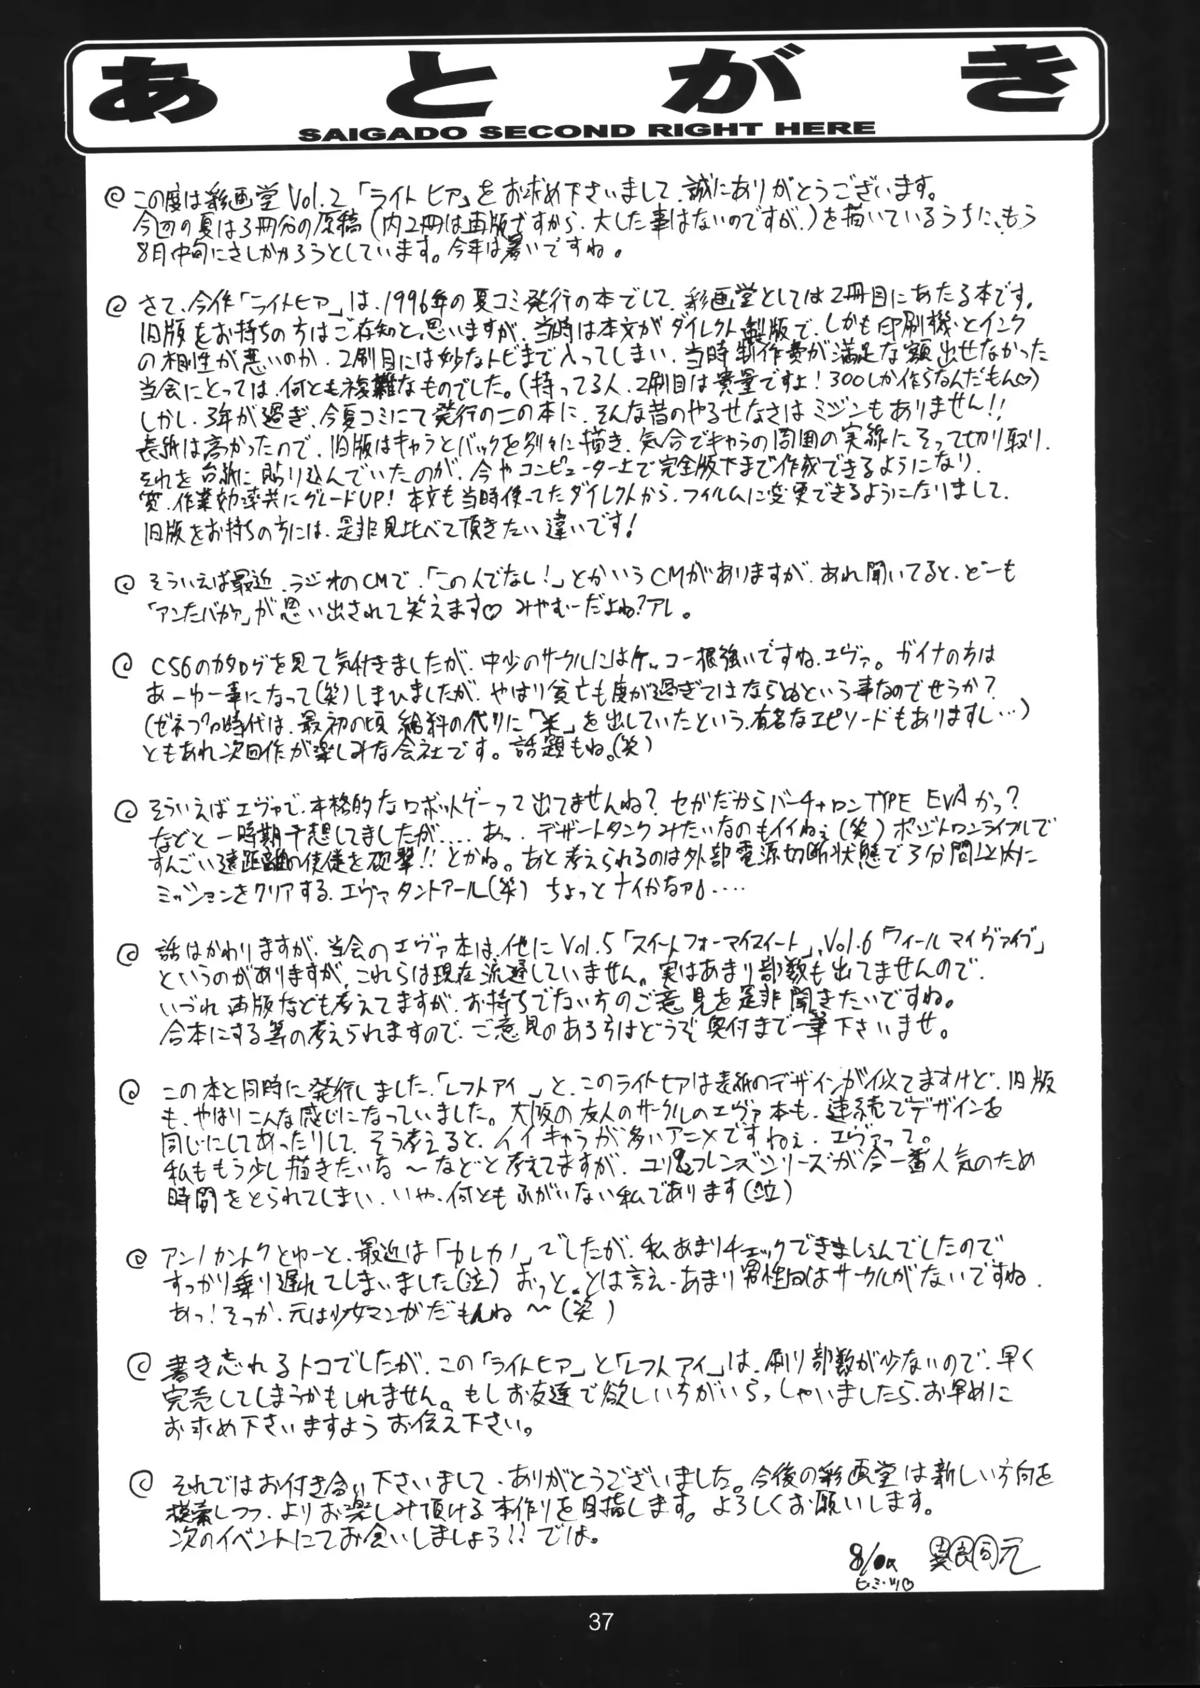 あとがき
SAIGADO SECOND RIGHT HERE
この度は彩画堂Vol.2「ライトヒア」をお求め下さいまして、誠にありがとうございます。
今回の夏は3冊分の原稿(内2冊は再版ですから、大した事はないのですが、)を描いているうちに、もう
8月中旬にさしかかろうとしています。今年は暑いですね。
さて、今作「ライトヒア」は、1996年の夏コミ発行の本でして、彩画堂としては2冊目にあたる本です。
旧版をお持ちの方はご存知と思いますが、当時は本文がダイレクト製版で、しかも印刷機とインク
の相性が悪いのか、2刷目には妙なトビまで入ってしまい、当時制作費が満足な額出せなかった
当会にとっては、何とも複雑なものでした。(持ってる人、2刷目は貴重ですよ!300しか作らなんだもん♡)
しかし、3年が過ぎ、今夏コミにて発行のこの本に、そんな昔のやるせなさはミジンもありません!!
表紙は高かったので、旧版はキャラとバックを別々に描き、気合でキャラの周囲の実線にそって切り取り、
それを台紙に貼り込んでいたのが、今やコンピューター上で完全版下まで作成できるようになり、
質、作業効率共にグレードUP!本文も当時使ってたダイレクトから、フィルムに変更できるようになりまして、
旧版をお持ちの方には、是非見比べて頂きたい違いです!
そういえば最近、ラジオのCMで、「この人でなし!」とかいうCMがありますが、あれ聞いてると、どーも
「アンたバカァ」が思い出されて笑えます♡ みやむーだよね?アレ。
C56のカタログを見て気付きましたが、中少のサークルにはケッコー根強いですね、エヴァ。ガイナの方は
あーゆー事になって(笑)しまひましたが、やはり貧乏も度が過ぎてはならぬという事なのでせうか?
(ゼネプロ時代は、最初の頃給料の代りに「米」を出していたという、有名なエピソードもありますし…)
ともあれ次回作が楽しみな会社です。話題もね。(笑)
そういえばエヴァで、本格的なロボットゲーって出てませんね?セガだからバーチャロンTYPE EVAかっ?
などと一時期予想してましたが……あっ、デザートタンクみたいなのもイイねぇ(笑)ポジトロンライフルで
すんごい遠距離の使徒を砲撃!!とかね。あと考えられるのは外部電源切断状態で3分間以内に
ミッションをクリアする、エヴァタントアール(笑) ちょっとナイかなァ……
話はかわりますが、当会のエヴァ本は、他にVol.5「スイートフォーマイスイート」、Vol.6「フィールマイヴァイブ」
というのがありますが、これらは現在流通していません。実はあまり部数も出てませんので、
いづれ再版なども考えてますが、お持ちでない方のご意見を是非聞きたいですね。
合本にする等の考えられますので、ご意見のある方はどうぞ奥付まで一筆下さいませ。
この本と同時に発行しました、「レフトアイ」と、このライトヒアは表紙のデザインが似てますけど、旧版
も、やはりこんな感じになっていました。大阪の友人のサークルのエヴァ本も、連続でデザインを
同じにしてあったりして、そう考えると、イイキャラが多いアニメですねぇ、エヴァって。
私ももう少し描きたいな～などと考えてますが、ユリ&フレンズシリーズが今一番人気のため
時間をとられてしまい、いや、何ともふがいない私であります(泣)
アンノカントクとゆーと、最近は「カレカノ」でしたが、私あまりチェックできましぇんでしたので
すっかり乗り遅れてしまいました(泣)おっと、とは言え、あまり男性向はサークルがないですね。
あっ!そっか、元は少女マンガだもんね～(笑)
書き忘れるトコでしたが、この「ライトヒア」と「レフトアイ」は、刷り部数が少ないので、早く
完売してしまうかもしれません。もしお友達で欲しい方がいらっしゃいましたら、お早めに
お求め下さいますようお伝え下さい。
それではお付き合い下さいまして、ありがとうございました。今後の彩画堂は新しい方向を
模索しつつ、よりお楽しみ頂ける本作りを目指します。よろしくお願いします。
次のイベントにてお会いしましょう!?では。
ヒ・ミ・ツ♡
37